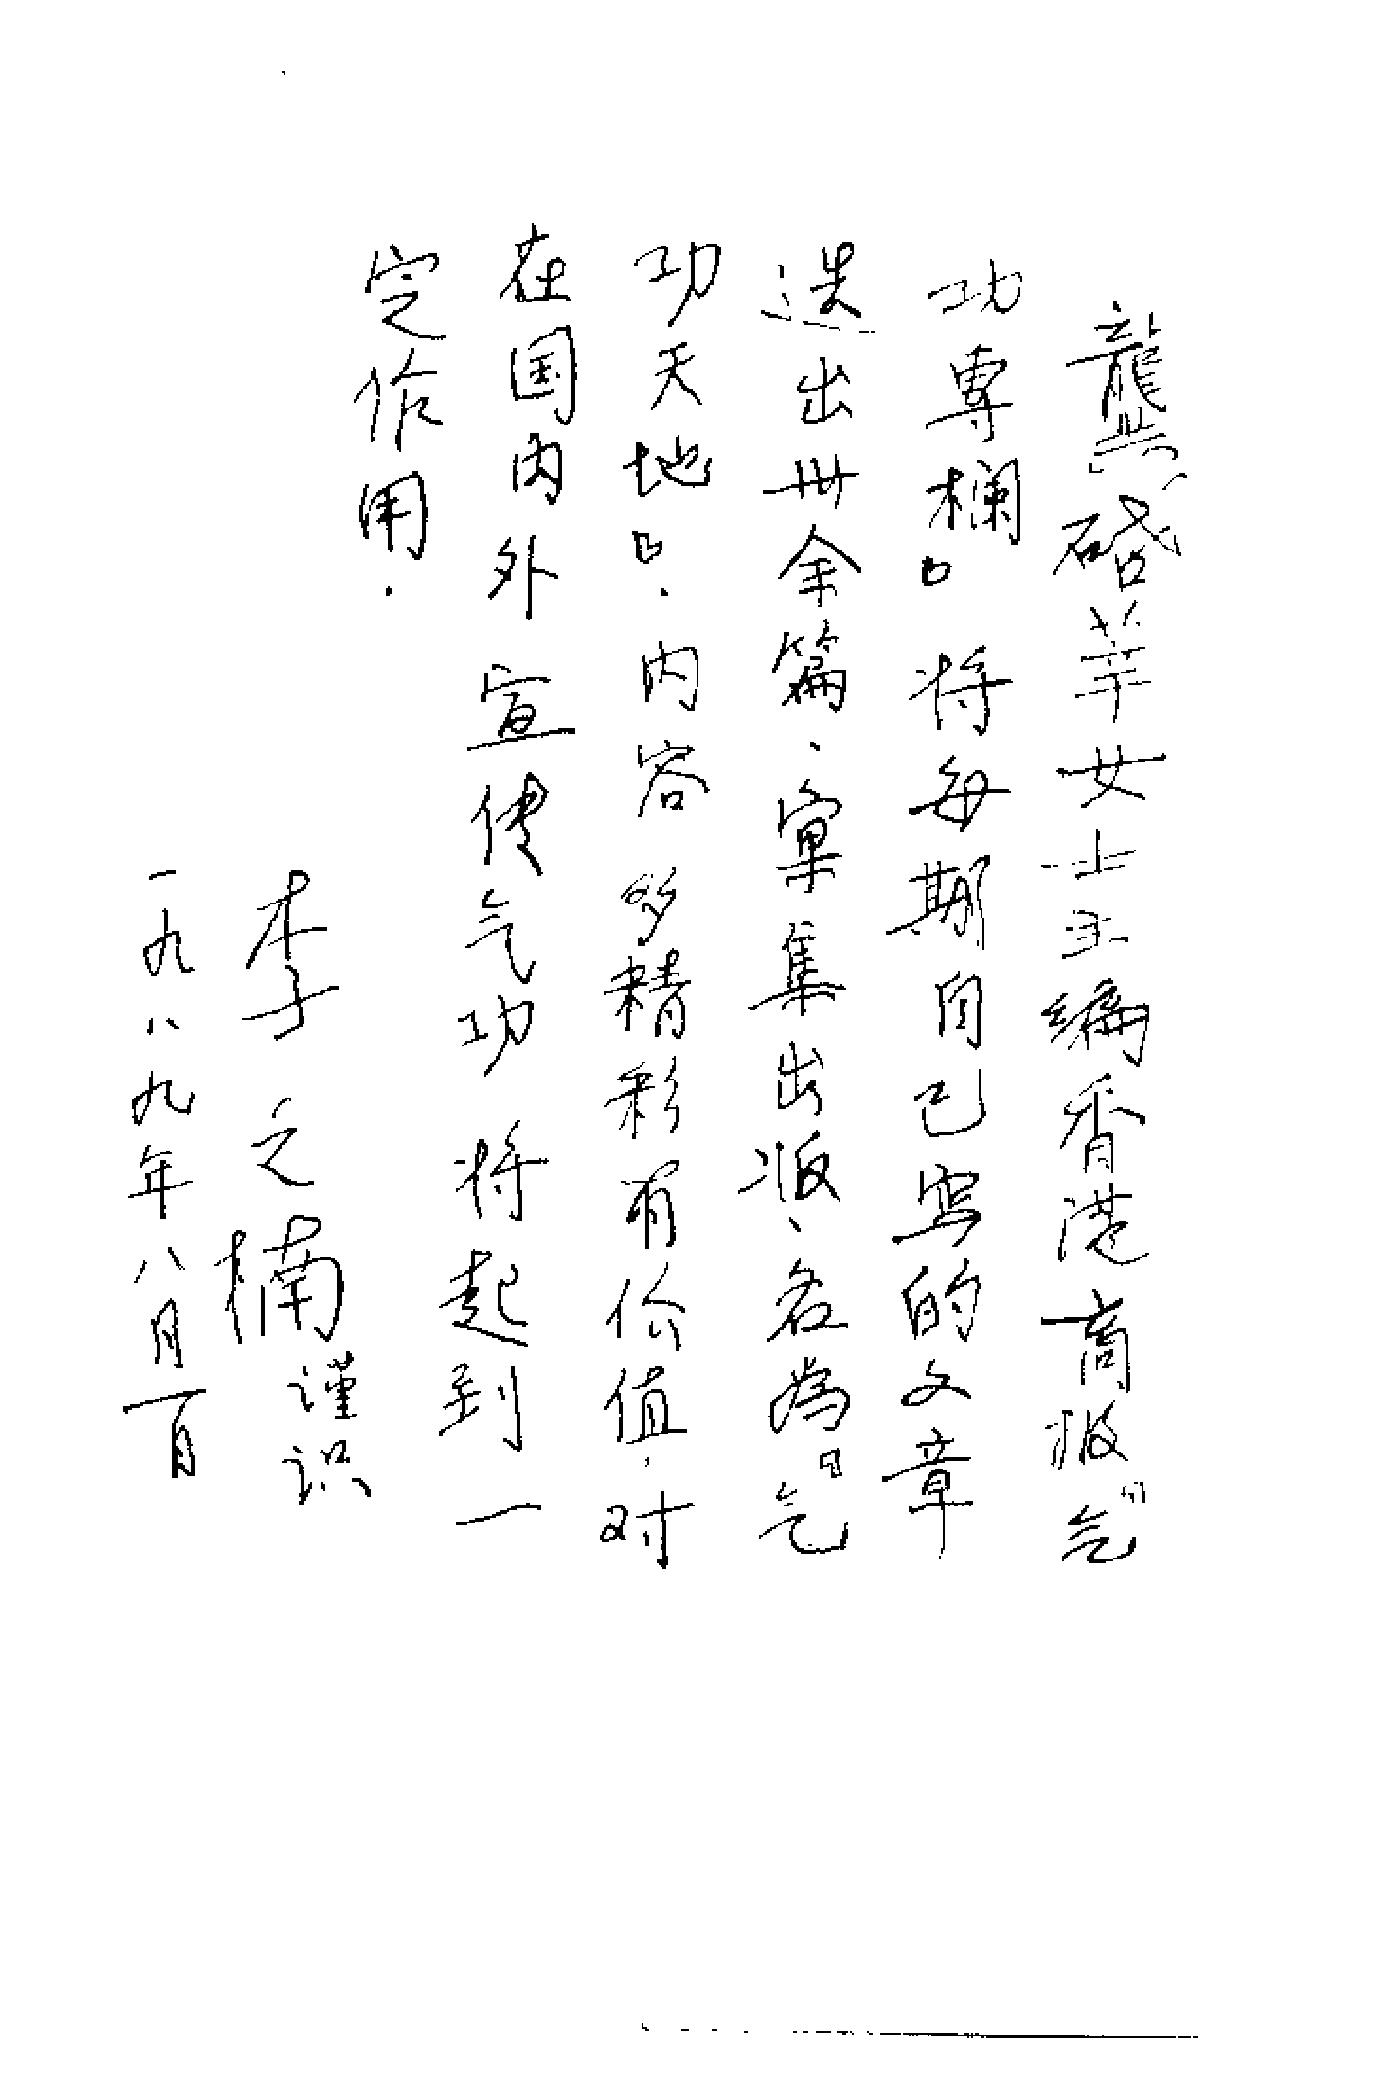 龔碒苹女士主編香港商报“气
功專欄”将每期自己写的文章
选出卅余篇、彙集出版、名為『气
功天地』.内容多精彩有价值.对
在国内外宣传气功将起到一
定作用.
李之楠謹识
一九八九年八月一日